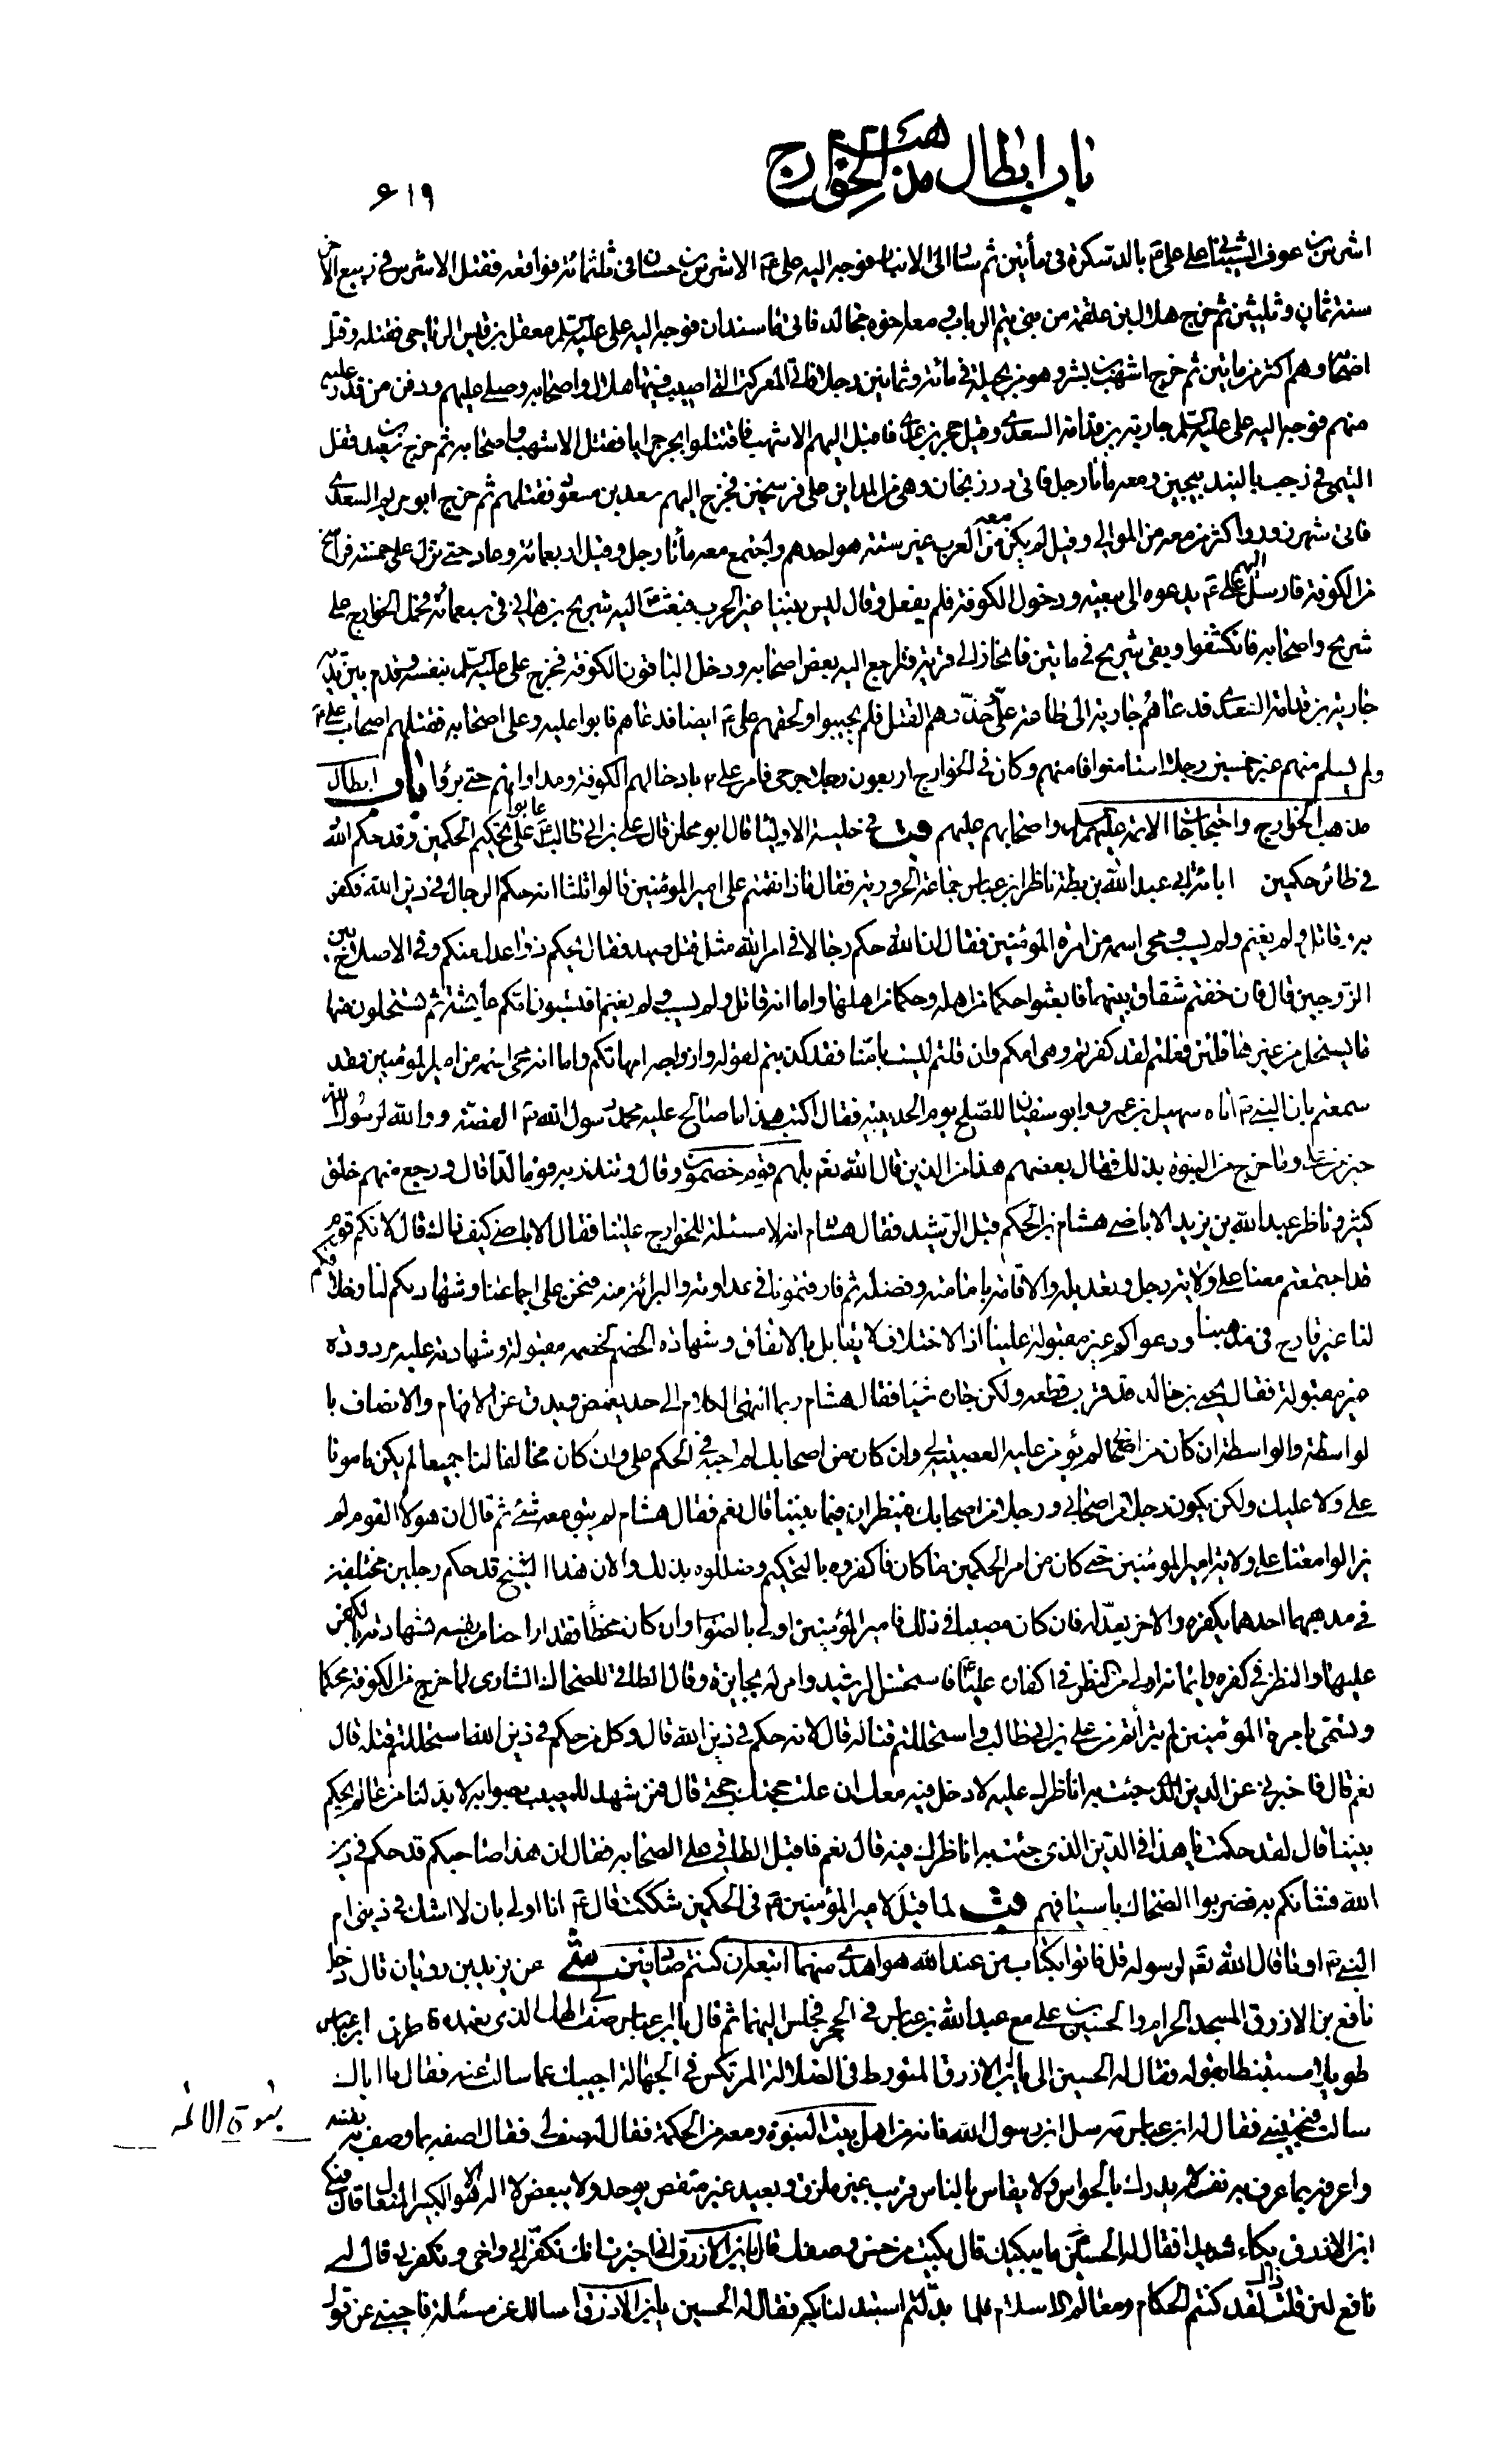 باب ابطال مذهب الخوارج
٦١٩
اشرس بن عوف الشيباني على علي ع بالدسكرة في مأتين ثم سار الى الانبار فوجه اليه علي ع الاشرس بن حسان في ثلثمائة فواقعه فقتل الاشرس في ربيع الاخر
سنة ثمان وثلثين ثم خرج هلال بن علقمة من بني تيم الرباب ومعه اخوه مجالد فاتى ماسبذان فوجه اليه علي عليه السلم معقل بن قيس الرياحي فقتله وقتل
اصحابه وهم اكثر من مأتين ثم خرج اشهب بن بشر وهو من بجيلة في مائة وثمانين رجلا فاتى المعركة التي اصيب فيها هلال واصحابه وصلى عليهم ودفن من قدر عليه
منهم فوجه اليه علي عليه السلم جارية بن قدامة السعدي وقيل حجر بن عدي فاقبل اليهم الاشهب فاقتتلوا بجرجرايا فقتل الاشهب واصحابه ثم خرج سعيد بن قفل
التيمي في رجب بالبندنيجين ومعه مأتا رجل فاتى درزنجان وهي من المداين على فرسخين فخرج اليهم سعد بن مسعود فقتلهم ثم خرج ابو مريم السعدي
فاتى شهرزور واكثر من معه من الموالي وقيل لم يكن معه من العرب غير ستة هو احدهم واجتمع معه مأتا رجل وقيل اربعمائة وعاد حتى نزل على خمسة فراسخ
من الكوفة فارسل اليهم علي ع يدعوه الى بيعته ودخول الكوفة فلم يفعل وقال ليس بيننا غير الحرب فبعث ع اليه شريح بن هاني في سبعمائة فحمل الخوارج على
شريح واصحابه فانكشفوا وبقى شريح في مأتين فانحاز الى قرية فتراجع اليه بعض اصحابه ودخل الباقون الكوفة فخرج علي عليه السلم بنفسه وقدم بين يديه
جارية بن قدامة السعدي فدعاهم جارية الى طاعة علي وحذرهم القتل فلم يجيبوا ولحقهم علي ع ايضا فدعاهم فابوا عليه وعلى اصحابه فقتلهم اصحاب علي ع
ولم يسلم منهم غير خمسين رجلا استامنوا فامنهم وكان في الخوارج اربعون رجلا جرحى فامر علي ع بادخالهم الكوفة ومداواتهم حتى برؤا باب ابطال
مذهب الخوارج واحتجاجات الائمة عليهم السلم واصحابهم عليهم قب في حلية الاوليا قال ابو مجلز قال علي بن ابي طالب ع عابوا على تحكيم الحكمين وقد حكم الله
في طائر حكمين ابانة ابي عبد الله بن بطة ناظر ابن عباس جماعة الحرورية فقال ماذا نقمتم على امير المؤمنين قالوا ثلثا انه حكم الرجال في دين الله فكفر
به وقاتل ولم يغنم ولم يسب ومحى اسمه من امرة المؤمنين فقال ان الله حكم رجالا في امر الله مثل قتل صيد فقال يحكم به ذوا عدل منكم وفي الاصلاح بين
الزوجين قال فان خفتم شقاق بينهما فابعثوا حكما من اهله وحكما من اهلها واما انه قاتل ولم يسب ولم يغنم افتسبون امكم عايشة ثم تستحلون منها
ما يستحل من غيرها فلئن فعلتم لقد كفرتم وهي امكم وان قلتم ليست بامنا فقد كذبتم لقوله وازواجه امهاتكم واما انه محى اسمه من امير المؤمنين فقد
سمعتم بان النبي ص اتاه سهيل بن عمرو وابو سفيان للصلح يوم الحديبية فقال اكتب هذا ما صالح عليه محمد رسول الله ص القصة ووالله لرسول الله
خير من علي وما خرج من النبوة بذلك فقال بعضهم هذا من الذين قال الله تعم بل هم قوم خصمون وقال وتنذر به قوما لدا قال ورجع منهم خلق
كثير وناظر عبد الله بن يزيد الاباضي هشام بن الحكم قبل الرشيد فقال هشام انه لا مسئلة للخوارج علينا فقال الاباضي كيف ذاك قال لانكم قوم
قد اجتمعتم معنا على ولاية رجل وتعديله والاقرار بامامته وفضله ثم فارقتمونا في عداوته والبرائة منه فنحن على اجماعنا وشهادتكم لنا وخلافكم
لنا غير قادح في مذهبنا ودعواكم غير مقبولة علينا اذ الاختلاف لا يقابل بالاتفاق وشهادة الخصم لخصمه مقبولة وشهادته عليه مردودة
غير مقبولة فقال يحيى بن خالد قد قرب قطعه ولكن جاره شيئا فقال هشام ربما انتهى الكلام الى حد يغمض ويدق عن الافهام والانصاف با
لواسطة والواسطة ان كان من اصحابي لم يؤمن عليه العصبية لي وان كان من اصحابك لم اجبه في الحكم علي وان كان مخالفا لنا جميعا لم يكن مامونا
علي ولا عليك ولكن يكون رجلا من اصحابي ورجلا من اصحابك فينظران فيما بيننا قال نعم فقال هشام لم يبق معه شئ ثم قال ان هؤلاء القوم لم
يزالوا معنا على ولاية امير المؤمنين حتى كان من امر الحكمين ما كان فاكفروه بالتحكيم وضللوه بذلك والان هذا الشيخ قد حكم رجلين مختلفين
في مذهبهما احدهما يكفره والاخر يعدله فان كان مصيبا في ذلك فامير المؤمنين اولى بالصواب وان كان مخطأ فقد اراحنا من نفسه بشهادته بالكفر
عليها والنظر في كفره وايمانه اولى من النظر في اكفاره عليا ع فاستحسن الرشيد وامر له بجايزة وقال الطاقي للضحاك الشاري لما خرج من الكوفة محكما
وتسمى بامرة المؤمنين لم تبرأتم من علي بن ابي طالب واستحللتم قتاله قال لانه حكم في دين الله قال وكل من حكم في دين الله استحللتم قتله قال
نعم قال فاخبرني عن الدين الذي جئت به اناظرك عليه لادخل فيه معك ان علت حجتك حجتي قال فمن شهد للمصيب بصوابه لا بد لنا من عالم يحكم
بيننا قال لقد حكمت يا هذا في الدين الذي جئت به اناظرك فيه قال نعم فاقبل الطاقي على اصحابه فقال ان هذا صاحبكم قد حكم في دين
الله فشأنكم به فضربوا الضحاك باسيافهم قب لما قيل لامير المؤمنين ع في الحكمين شككت قال ع انا اولى بان لا اشك في ديني ام
النبي ص اوما قال الله تعم لرسوله قل فاتوا بكتاب من عند الله هو اهدى منهما اتبعه ان كنتم صادقين شى عن يزيد بن رويان قال دخل
نافع بن الازرق المسجد الحرام والحسين بن علي مع عبد الله بن عباس في الحجر فجلس اليهما ثم قال يا ابن عباس صف لي الهك الذي تعبده فاطرق ابن عباس
طويلا مستبطئا بقوله فقال له الحسين الي يا ابن الازرق المتورط في الضلالة المرتكس في الجهالة اجيبك عما سالت عنه فقال ما اياك
سالت فتجيبني فقال له ابن عباس مه سل ابن رسول الله فانه من اهل بيت النبوة ومعه من الحكمة فقال له صف لي فقال اصفه بما وصف به نفسه
واعرفه بما عرف به نفسه لا يدرك بالحواس ولا يقاس بالناس قريب غير ملزق وبعيد غير متقص يوحد ولا يبعض لا اله الا هو الكبير المتعال قال فبكى
ابن الازرق بكاء شديدا فقال له الحسين ع ما يبكيك قال بكيت من حسن وصفك قال يا ابن الازرق اني اخبرت انك تكفر ابي واخي وتكفرني قال له
نافع لئن قلت ذاك لقد كنتم الحكام ومعالم الاسلام فلما بدلتم استبدلنا بكم فقال له الحسين يا ابن الازرق اسالك عن مسئلة فاجبني عن قول